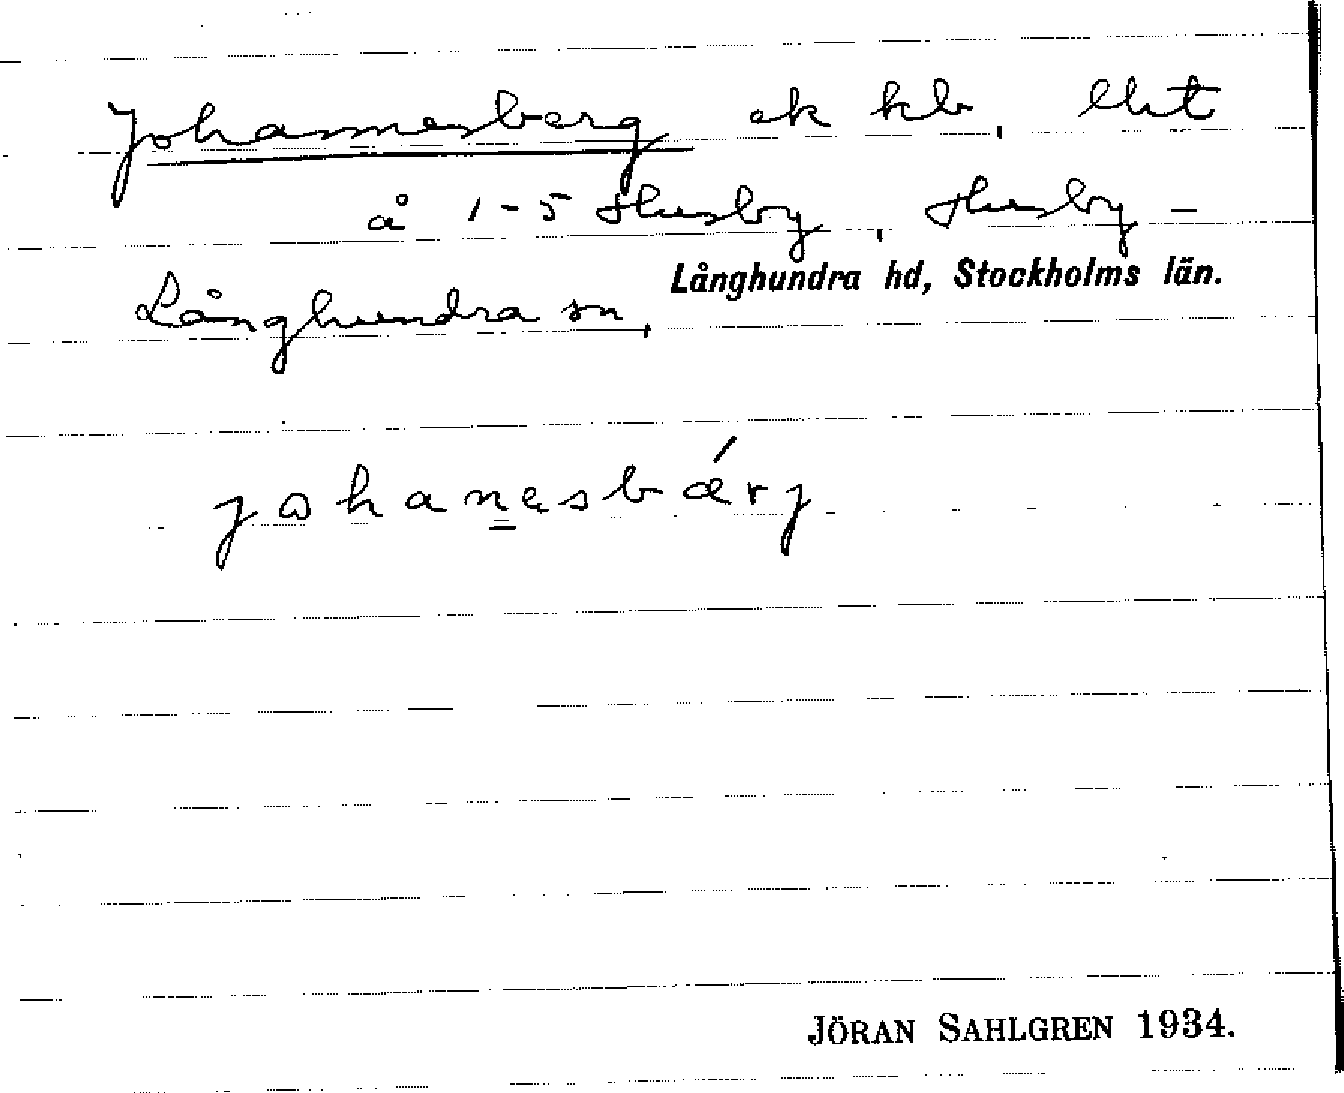 Johannesberg ek kb, lht
å 1-5 Husby, Husby-
Långhundra hd, Stockholms län.
Långhundra sn,
johanesbærj
JÖRAN SAHLGREN 1934.